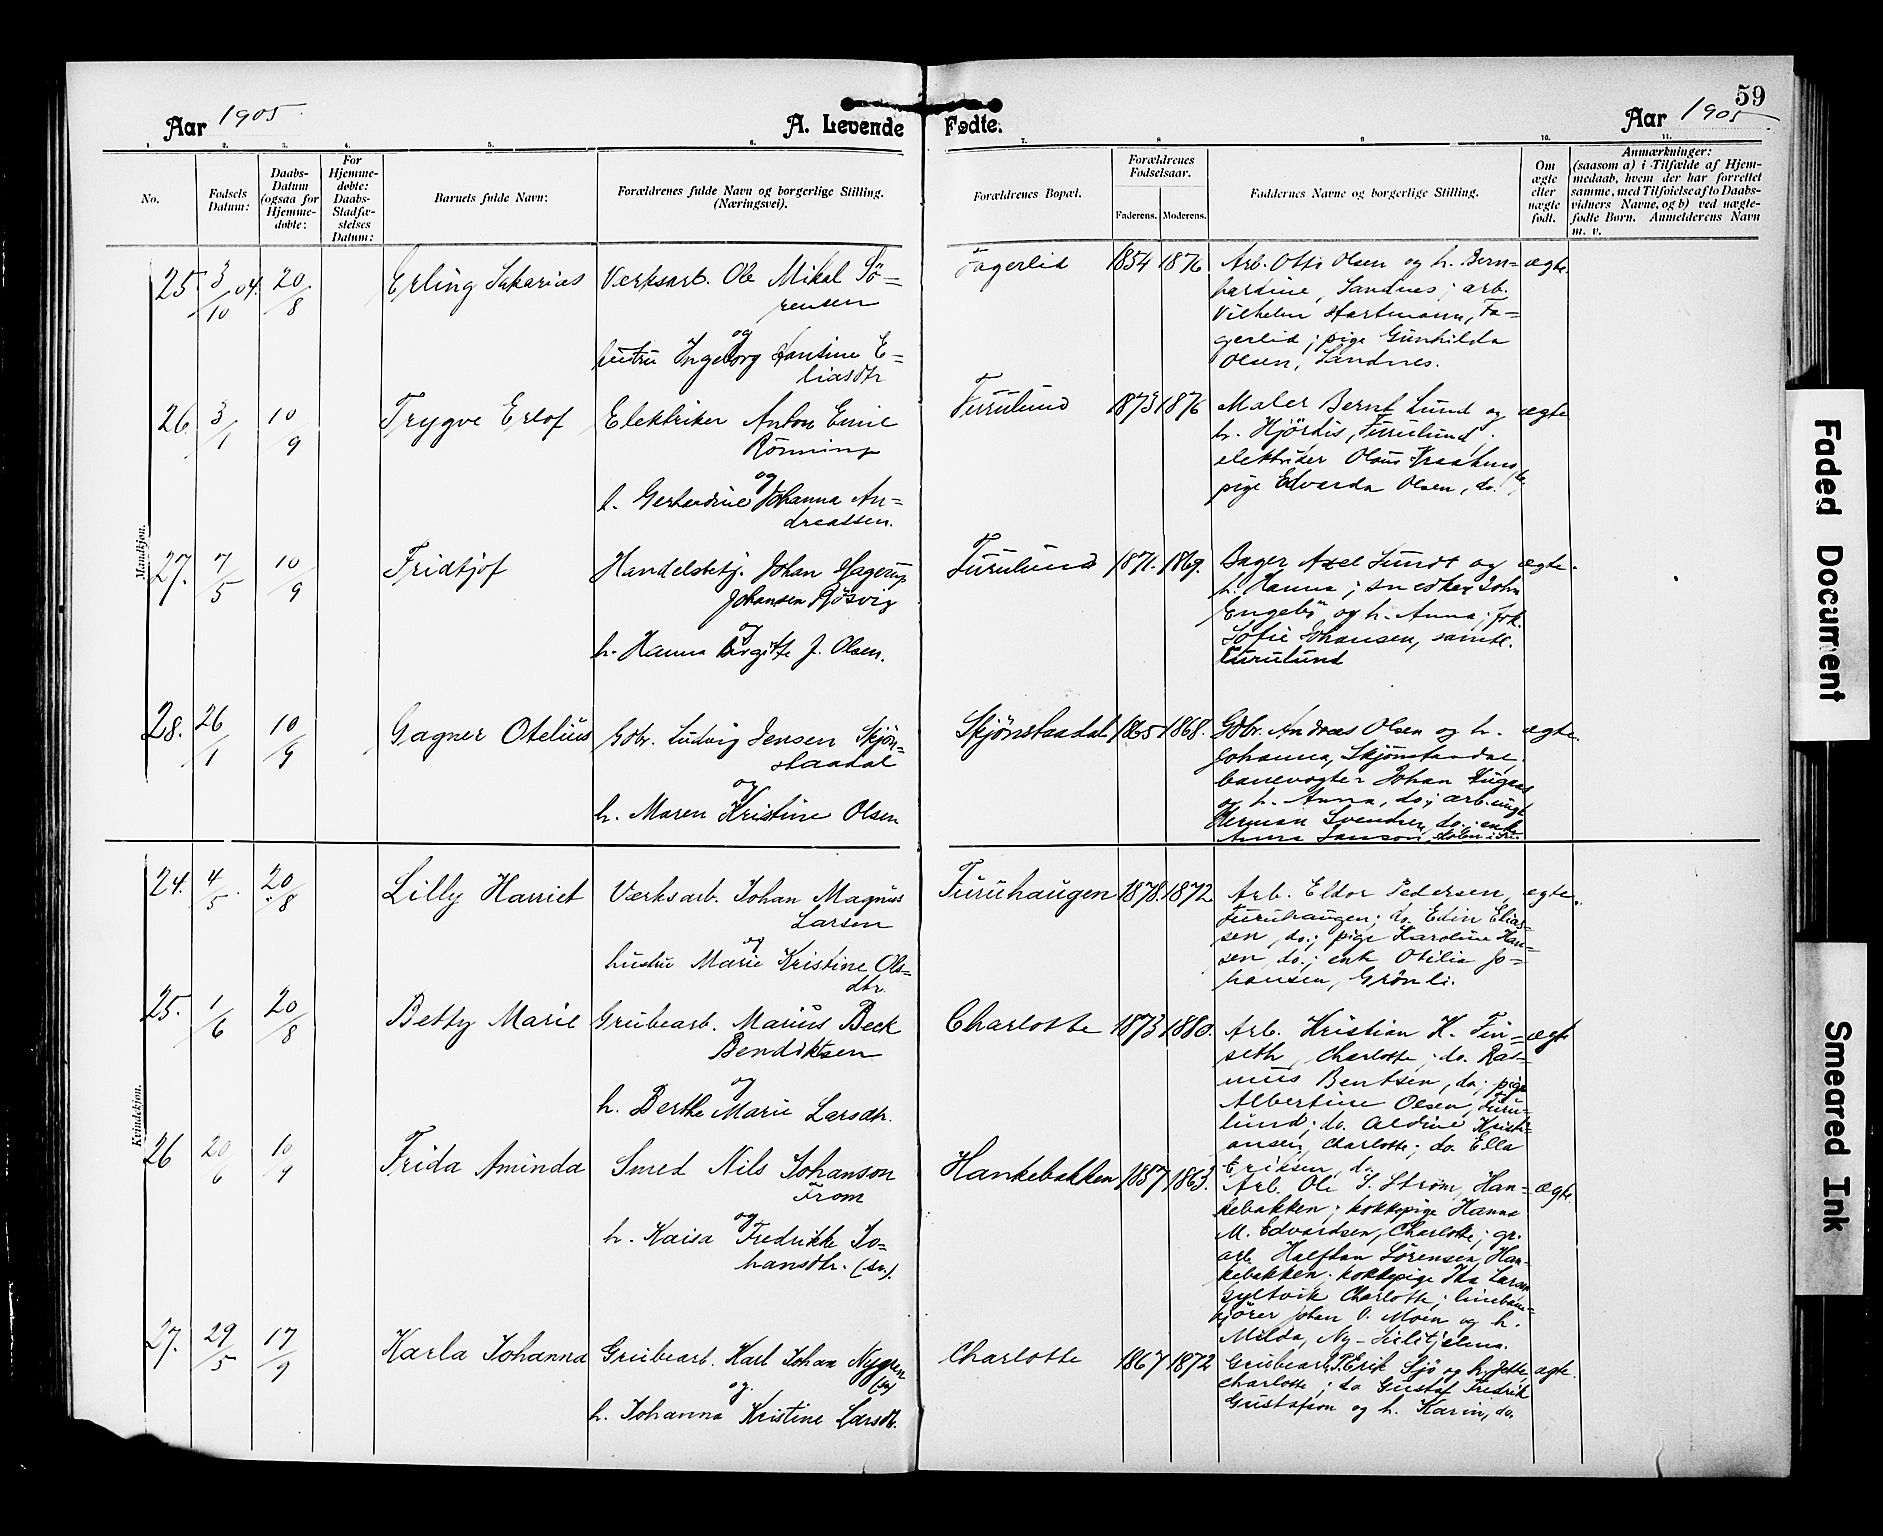 59
Aar 1905
A. Levende Fødte.
Aar 1905
1. 2. 3. 4. 5. 6. 7. 8. 9. 10. 11.
No.
Fødsels Datum:
Daabs-Datum (ogsaa for Hjemme-døbte:
For Hjemme-døbte: Daabs-Stadfæ-stelses Datum:
Barnets fulde Navn:
Forældrenes fulde Navn og borgerlige Stilling. (Næringsvei).
Forældrenes Bopæl.
Forældrenes Fødselsaar.
Faderens. Moderens.
Faddernes Navne og borgerlige Stilling.
Om ægte eller uægte født.
Anmærkninger:
(saasom a) i Tilfælde af Hjem-
medaab, hvem der har forrettet
samme, med Tilføielse af to Daabs-
vidners Navne, og b) ved uægte-
fødte Børn. Anmelderens Navn
m. v.
Mandkjøn.
25. 3/10 04. 20/8 Erling Sakarias
Værksarb. Ole Mikal Sö-
rensen
og
hustru Ingeborg Hansine E-
liasdtr
Fagerlid 1854 1876
Arb. Otto Olsen og h. Bern-
hardine, Sandnes; arb.
Vilhelm Hartmann, Fa-
gerlid; pige Gunhilda
Olsen, Sandnes.
ægte
26. 3/1 10/9 Trygve Erlof
Elektriker Anton Emil
Rönning
og
h. Gerhardine Johanna An-
dreassen.
Furulund 1873 1876
Maler Bernt Lund og
h. Hjördis, Furulund;
elektriker Olaus
pige Edvarda Olsen, do.
ægte
27. 7/5 10/9 Fridtjof
Handelsbetj. Johan Hagerup
Johansen Rösvig
og
h. Hanna Birgitte J. Olsen.
Furulund 1871. 1869.
Bager Axel Lundt og
h. Hanna; snedker John
Engebö og h. Anna; frk.
Sofie Johansen, samtl.
Furulund
ægte.
28. 26/1 10/9 Gagner Otelius
Gbr. Ludvig Jensen Skjön-
staadal
og
h. Maren Kristine Olsen
Skjönstaadal 1865 1868.
Gbr. Andreas Olsen og h.
Johanna, Skjönstaadal.
banevogter Johan
og h. Anna, do; arb. ungk
Herman Svendsen, do.; enke
Anna Jonson,
ægte.
Kvindekjøn.
24. 4/5. 20/8 Lilly Harriet
Værksarb. Johan Magnus
Larsen
og
hustru Marie Kristine Ols-
dtr.
Furuhaugen 1878. 1872
Arb. Eldor Pedersen,
Furuhaugen; do. Edin Elias-
sen, do.; pige Karoline Han-
sen, do.; enk. Otilia Jo-
hansen, Grönli.
ægte.
25. 1/6 20/8 Betty Marie
Grubearb. Marius Beck
Bendiktsen
og
h. Berthe Marie Larsdtr.
Charlotte 1873 1880.
Arb. Kristian K. Fin-
seth, Charlotte; do. Ras-
mus Bentsen, do; pige
Albertine Olsen, Furu-
lund; do. Aldine Kristi-
ansen, Charlotte; do. Ella
Eriksen, do.
ægte
26 20/6 10/9 Frida Aminda
Smed Nils Johanson
From
og
h. Kaisa Fredrikke Jo-
hansdtr. (sv.).
Hankebakken 1857 1863.
Arb. Ole S. Ström, Han-
kebakken; kokkepige Hanna
M. Edvardsen, Charlotte; gr.
arb. Halfdan Sörensen, Han-
kebakken; kokkepige Ida Larsen
Gyltvik Charlotte; linebane-
kjörer Johan O. Moen og h.
Milda, Ny-Sulitjelma.
ægte.
27. 29/5 17/9 Karla Johanna
Grubearb. Karl Johan Nygren
(sv)
og
h. Johanna Kristine Larsdtr.
Charlotte 1867 1872
Grubearb. P. Erik Sjö og h. Jette,
Charlotte; do Gustaf Fredrik
Gustafson og h. Karin, do.
ægte.
Faded Document
Smeared Ink